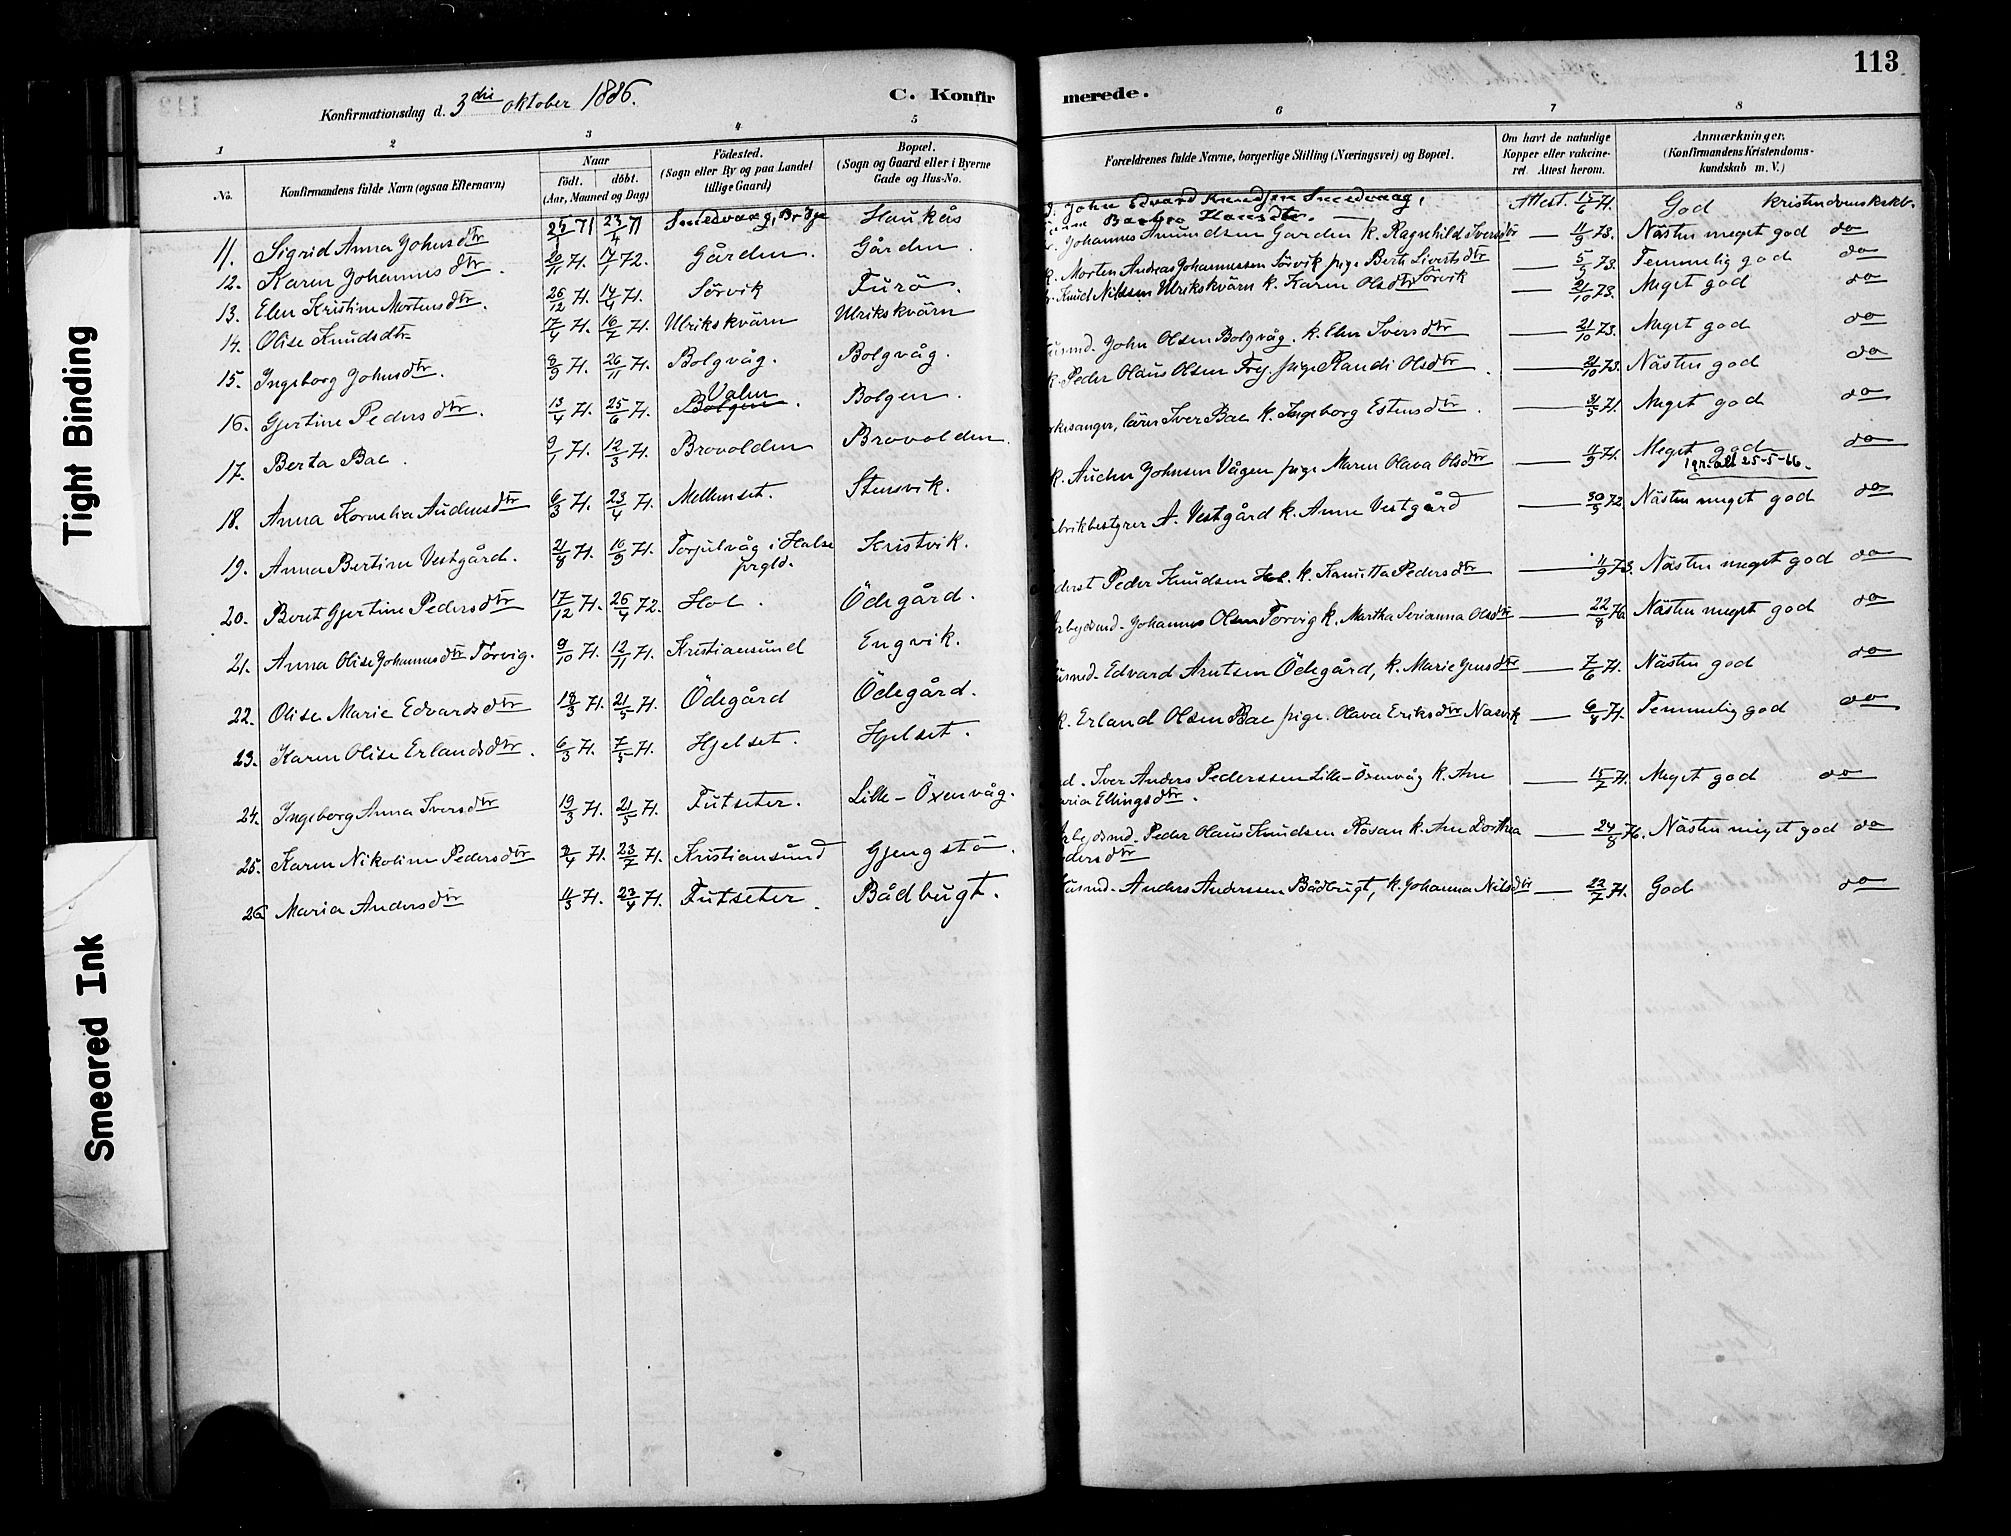 113
Konfirmationsdag d. 3die oktober 1886.
C. Konfirmerede.
1 2 3 4 5 6 7 8
No.
Konfirmandens fulde Navn (ogsaa Efternavn)
Naar
födt. döbt.
(Aar, Maaned og Dag)
Födested.
(Sogn eller By og paa Landet
tillige Gaard)
Bopæl.
(Sogn og Gaard eller i Byerne
Gade og Hus-No.
Forældrenes fulde Navne, borgerlige Stilling (Næringsvei) og Bopæl.
Om havt de naturlige
Kopper eller vakcineret. Attest herom.
Anmærkninger.
(Konfirmandens Kristendomskundskab m. V.)
11. Sigrid Anna Johnsdtr 25/1 71 23/4 71 Smedvaag, Haukås John Edvard Knudsen Smedvaag, Hansdtr. Attest. 15/6 71. God
12. Karen Johannesdtr. 20/11 71. 17/1 72. Gården. Gården. Johannes Amundsen Garden k. Ragnhild Iversdtr — 11/9 73. Nästen meget god do
13. Elen Kristine Mortensdtr. 26/12 71. 14/4 71. Sörvik Furö. k. Morten Andreas Johannessen Sörvik pige Berth Sivertsdtr Sörvik — 5/9 73. Temmelig god do
14. Olise Knudsdtr 17/4 71. 16/7 71. Ulrikskvärn Ulrikskvärn Knud Nilsen Ulrikskvärn k. Karen Olsdtr — 21/10 73. Meget god do
15. Ingeborg Johnsdtr. 8/9 71. 26/11 71. Bolgvåg. Bolgvåg. John Olsen Bolgvåg. k. Elen Iversdtr — 21/10 73. Meget god do
16. Gjertine Pedersdtr. 13/4 71. 25/6 71. Valen Bolgen. Bolgen. k. Peder Olaus Olsen Frej. pige Randi Olsdtr. — 21/10 73. Nästen god do
17. Berta Bae. 9/1 71. 12/3 71. Brovolden Brovolden. Iver Bae k. Ingeborg Estensdtr. — 31/5 71. Meget god do
18. Anna Kornelia Audensdtr 6/3 71. 23/4 71. Mellemset. Stensvik. k. Auden Johnsen Vågen pige Maren Olava Olsdtr — 11/9 71. Meget god do
25-5-66.
19. Anna Bertine Vestgård. 21/8 71. 10/9 71. Torjulvåg i Halse prgld. Kristvik. A. Vestgård k. Anne Vestgård — 30/5 72 Nästen meget god do
20. Beret Gjertine Pedersdtr 17/12 71. 26/4 72. Hol. Ödegård. Peder Knudsen Hol. k. Pedersdtr — 11/9 73. Nästen meget god do
21. Anna Olise Johannesdtr Torvig. 9/10 71. 12/11 71. Kristiansund Engvik. Johannes Olsen Torvig k. Martha Serianna Olsdtr — 22/8 76 Nästen meget god do
22. Olise Marie Edvardsdtr 18/3 71. 21/5 71. Ödegård Ödegård. Edvard Arntsen Ödegård, k. Marie Jensdtr — 7/6 71. Nästen god do
23. Karen Olise Erlandsdtr. 6/3 71. 7/5 71. Hjelset. Hjelset. k. Erland Olsen Bae pige. Olava Eriksdtr Nasvik — 6/4 71. Temmelig god do
24. Ingeborg Anna Iversdtr 19/3 71. 21/5 71. Futseter. Lille-Öxenvåg. Iver Anders Pederssen Lille-Öxenvåg k. Ane
Maria Ellingsdtr. — 15/7 71. Meget god do
25. Karen Nikoline Pedersdtr 2/4 71. 23/7 71. Kristiansund Gjengstö. Peder Olaus Knudsen Rosan k. Ane Dorthea
Pedersdtr — 24/8 76. Nästen meget god do
26 Maria Andersdtr 11/3 71. 23/4 71. Futseter. Bådbugt. Husmd. Anders Anderssen Bådbugt, k. Johanna Nilsdtr — 22/7 71. God do
Tight Binding
Smeared Ink